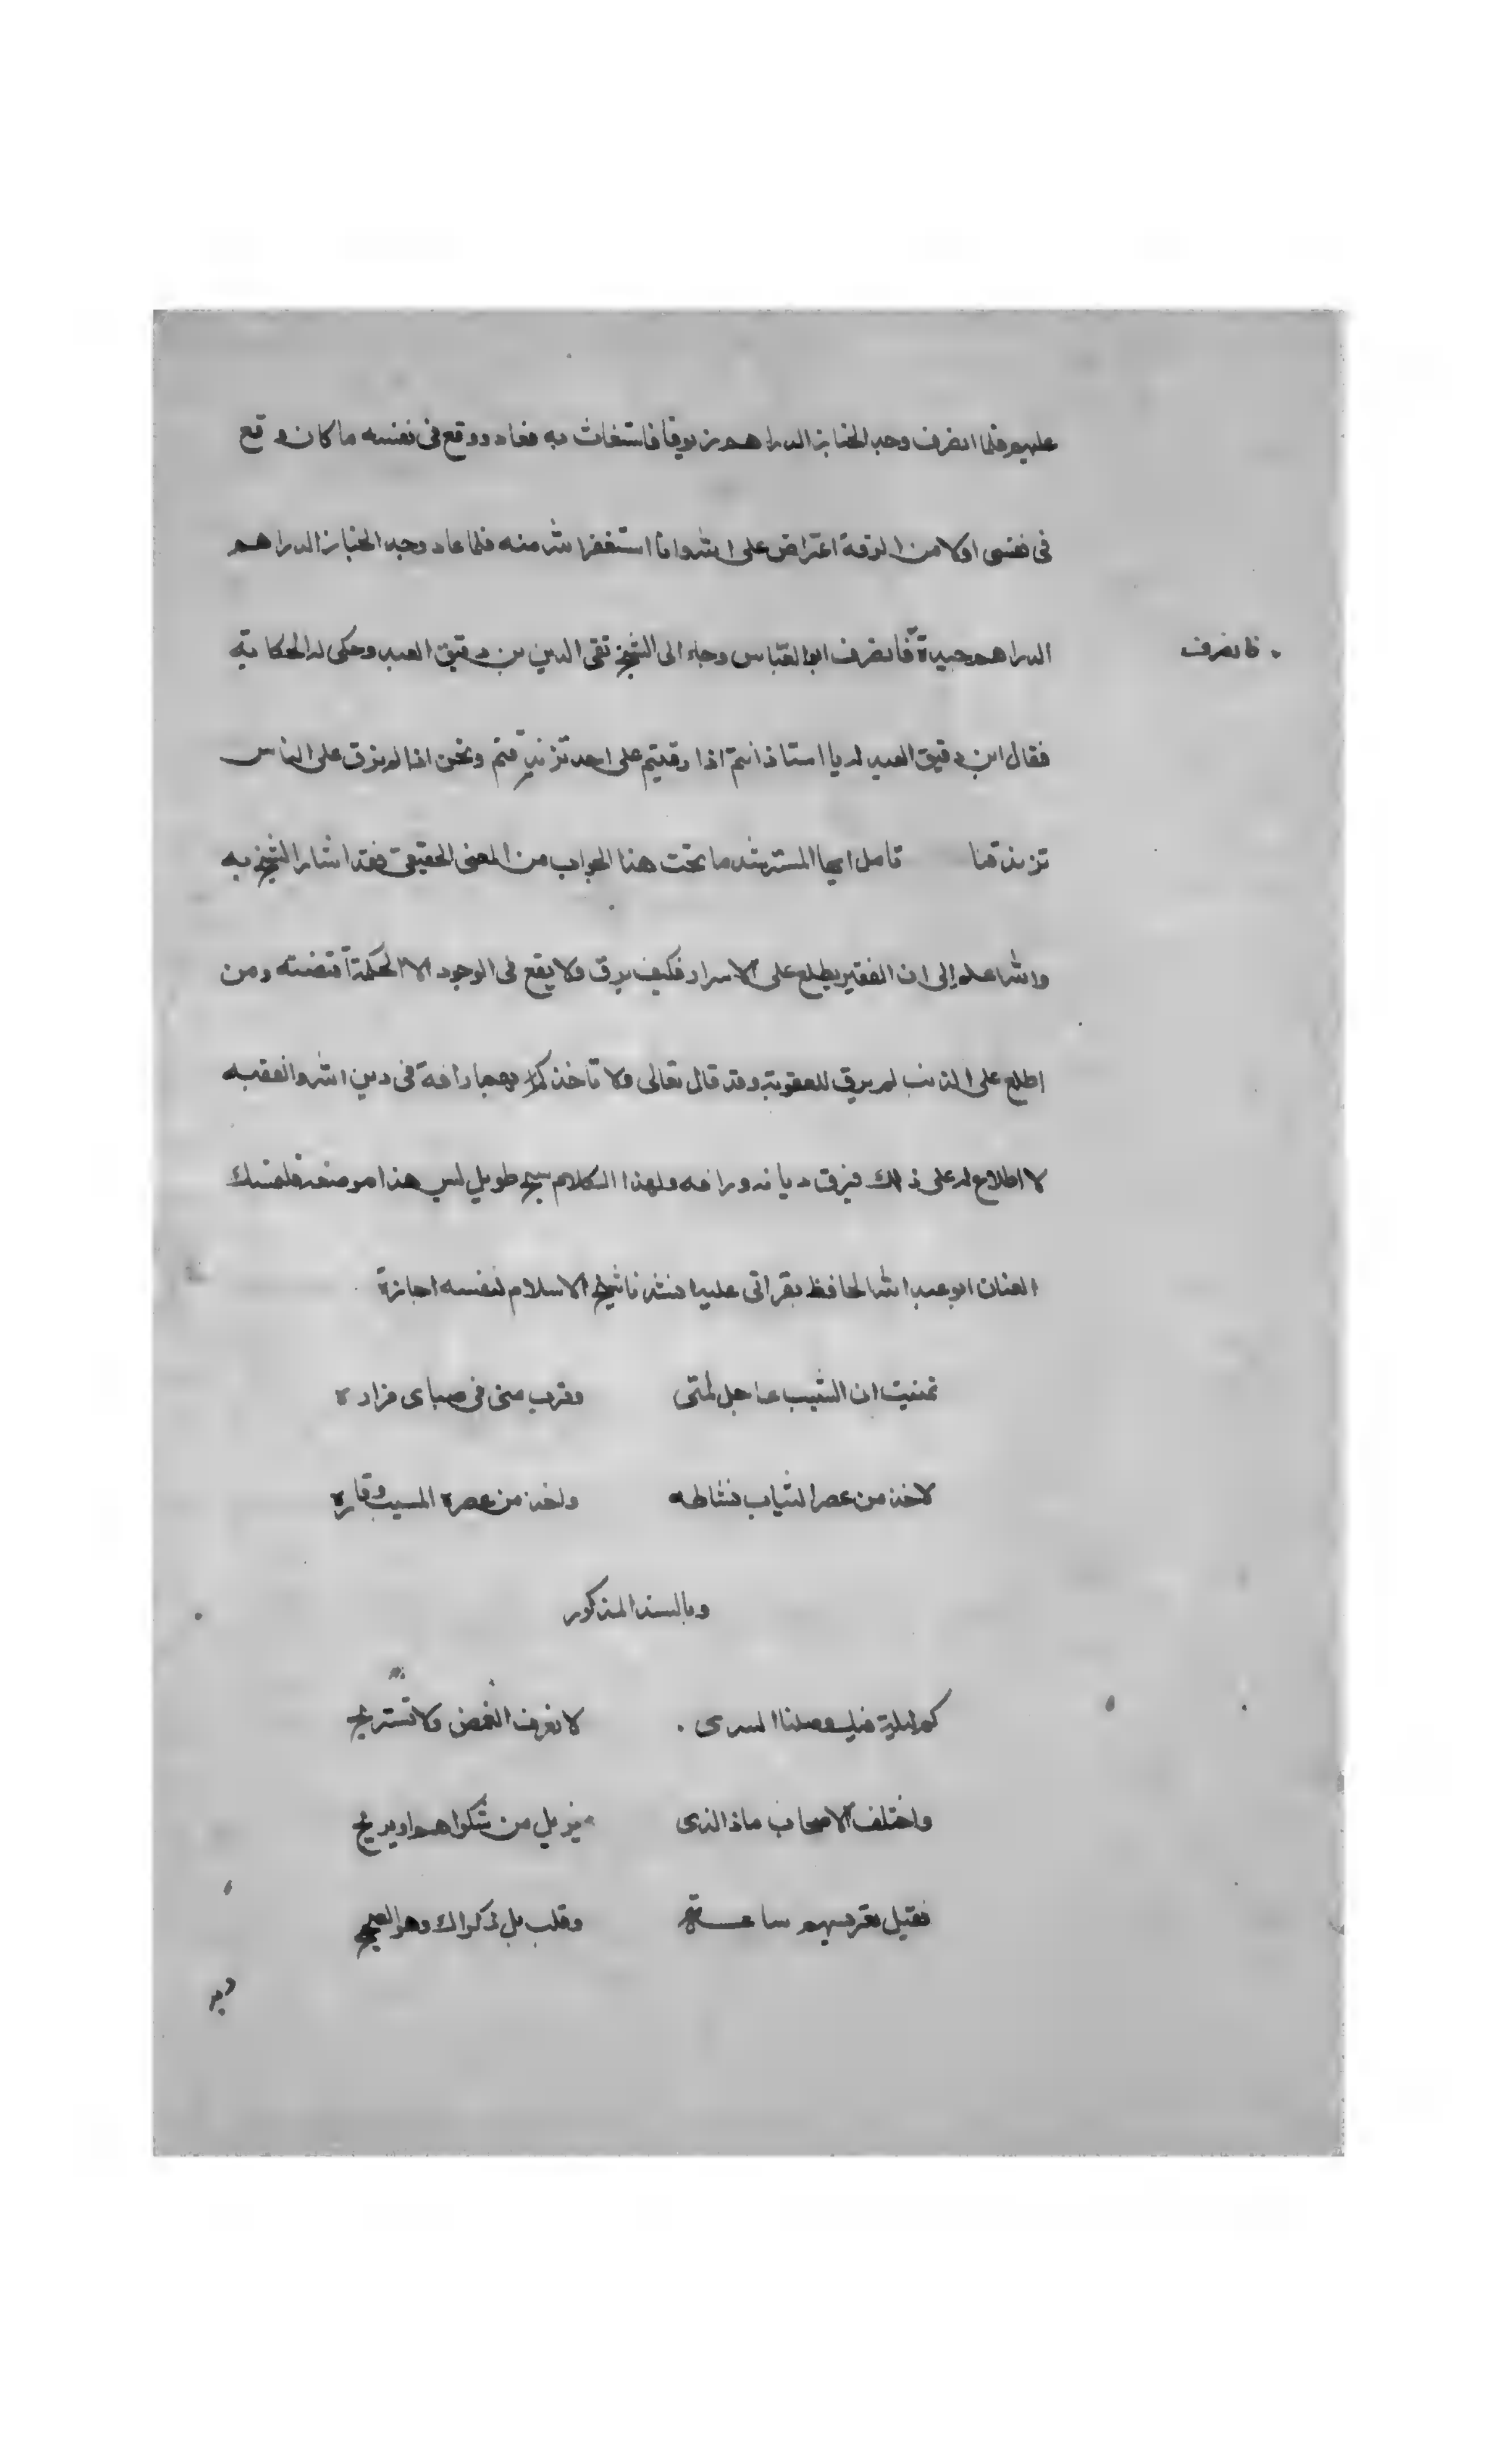 عليهم فلما انصرف وجد الخباز الدراهم زيوفا فاستغاث به فعاد ووقع فى نفسه ما كان وقع
فى نفسى اولا من الرقة اعتراض على الله وانا استغفر الله منه فلما عاد وجد الخباز الدراهم
الدراهم جيدة فانصرف ابو العباس وجاء الى الشيخ تقى الدين بن دقيق العيد وحكى له الحكاية
فانصرف
فقال ابن دقيق العيد له يا استاذ انتم اذا رقيتم على احد تزندقتم ونحن اذا لم نرق على الناس
تزندقنا تامل ايها المسترشد ما تحت هذا الجواب من المعنى الحقيقى فقد اشار الشيخ به
والله اعلم إلى ان الفقير يطلع على الاسرار فكيف يرق ولا يقع فى الوجود الا لحكمة اقتضته ومن
اطلع على الذنب لم يرق للعقوبة وقد قال تعالى ولا تاخذكم بهما رافة فى دين الله والفقيه
لا اطلاع له على ذلك فيرق ديانه ورافه ولهذا الكلام شرح طويل ليس هذا موضعه فلنمسك
العنان ابو عبد الله الحافظ بقراتى عليه انشدنا شيخ الاسلام لنفسه اجازة
تمنيت ان الشيب عاجل لمتى وقرب منى فى صباى مزاره
لاخذ من عصر الشباب نشاطه واخذ من عصره المشيب وقاره
وبالسند المذكور
كم ليلة فيك وصلنا السرى لا نعرف الغمض ولا نستريح
واختلف الاصحاب ماذا الذى يزيل من شكواهم او يريح
فقيل تعريسهم ساعة وقلت بل ذكراك وهو الصحيح
وبه